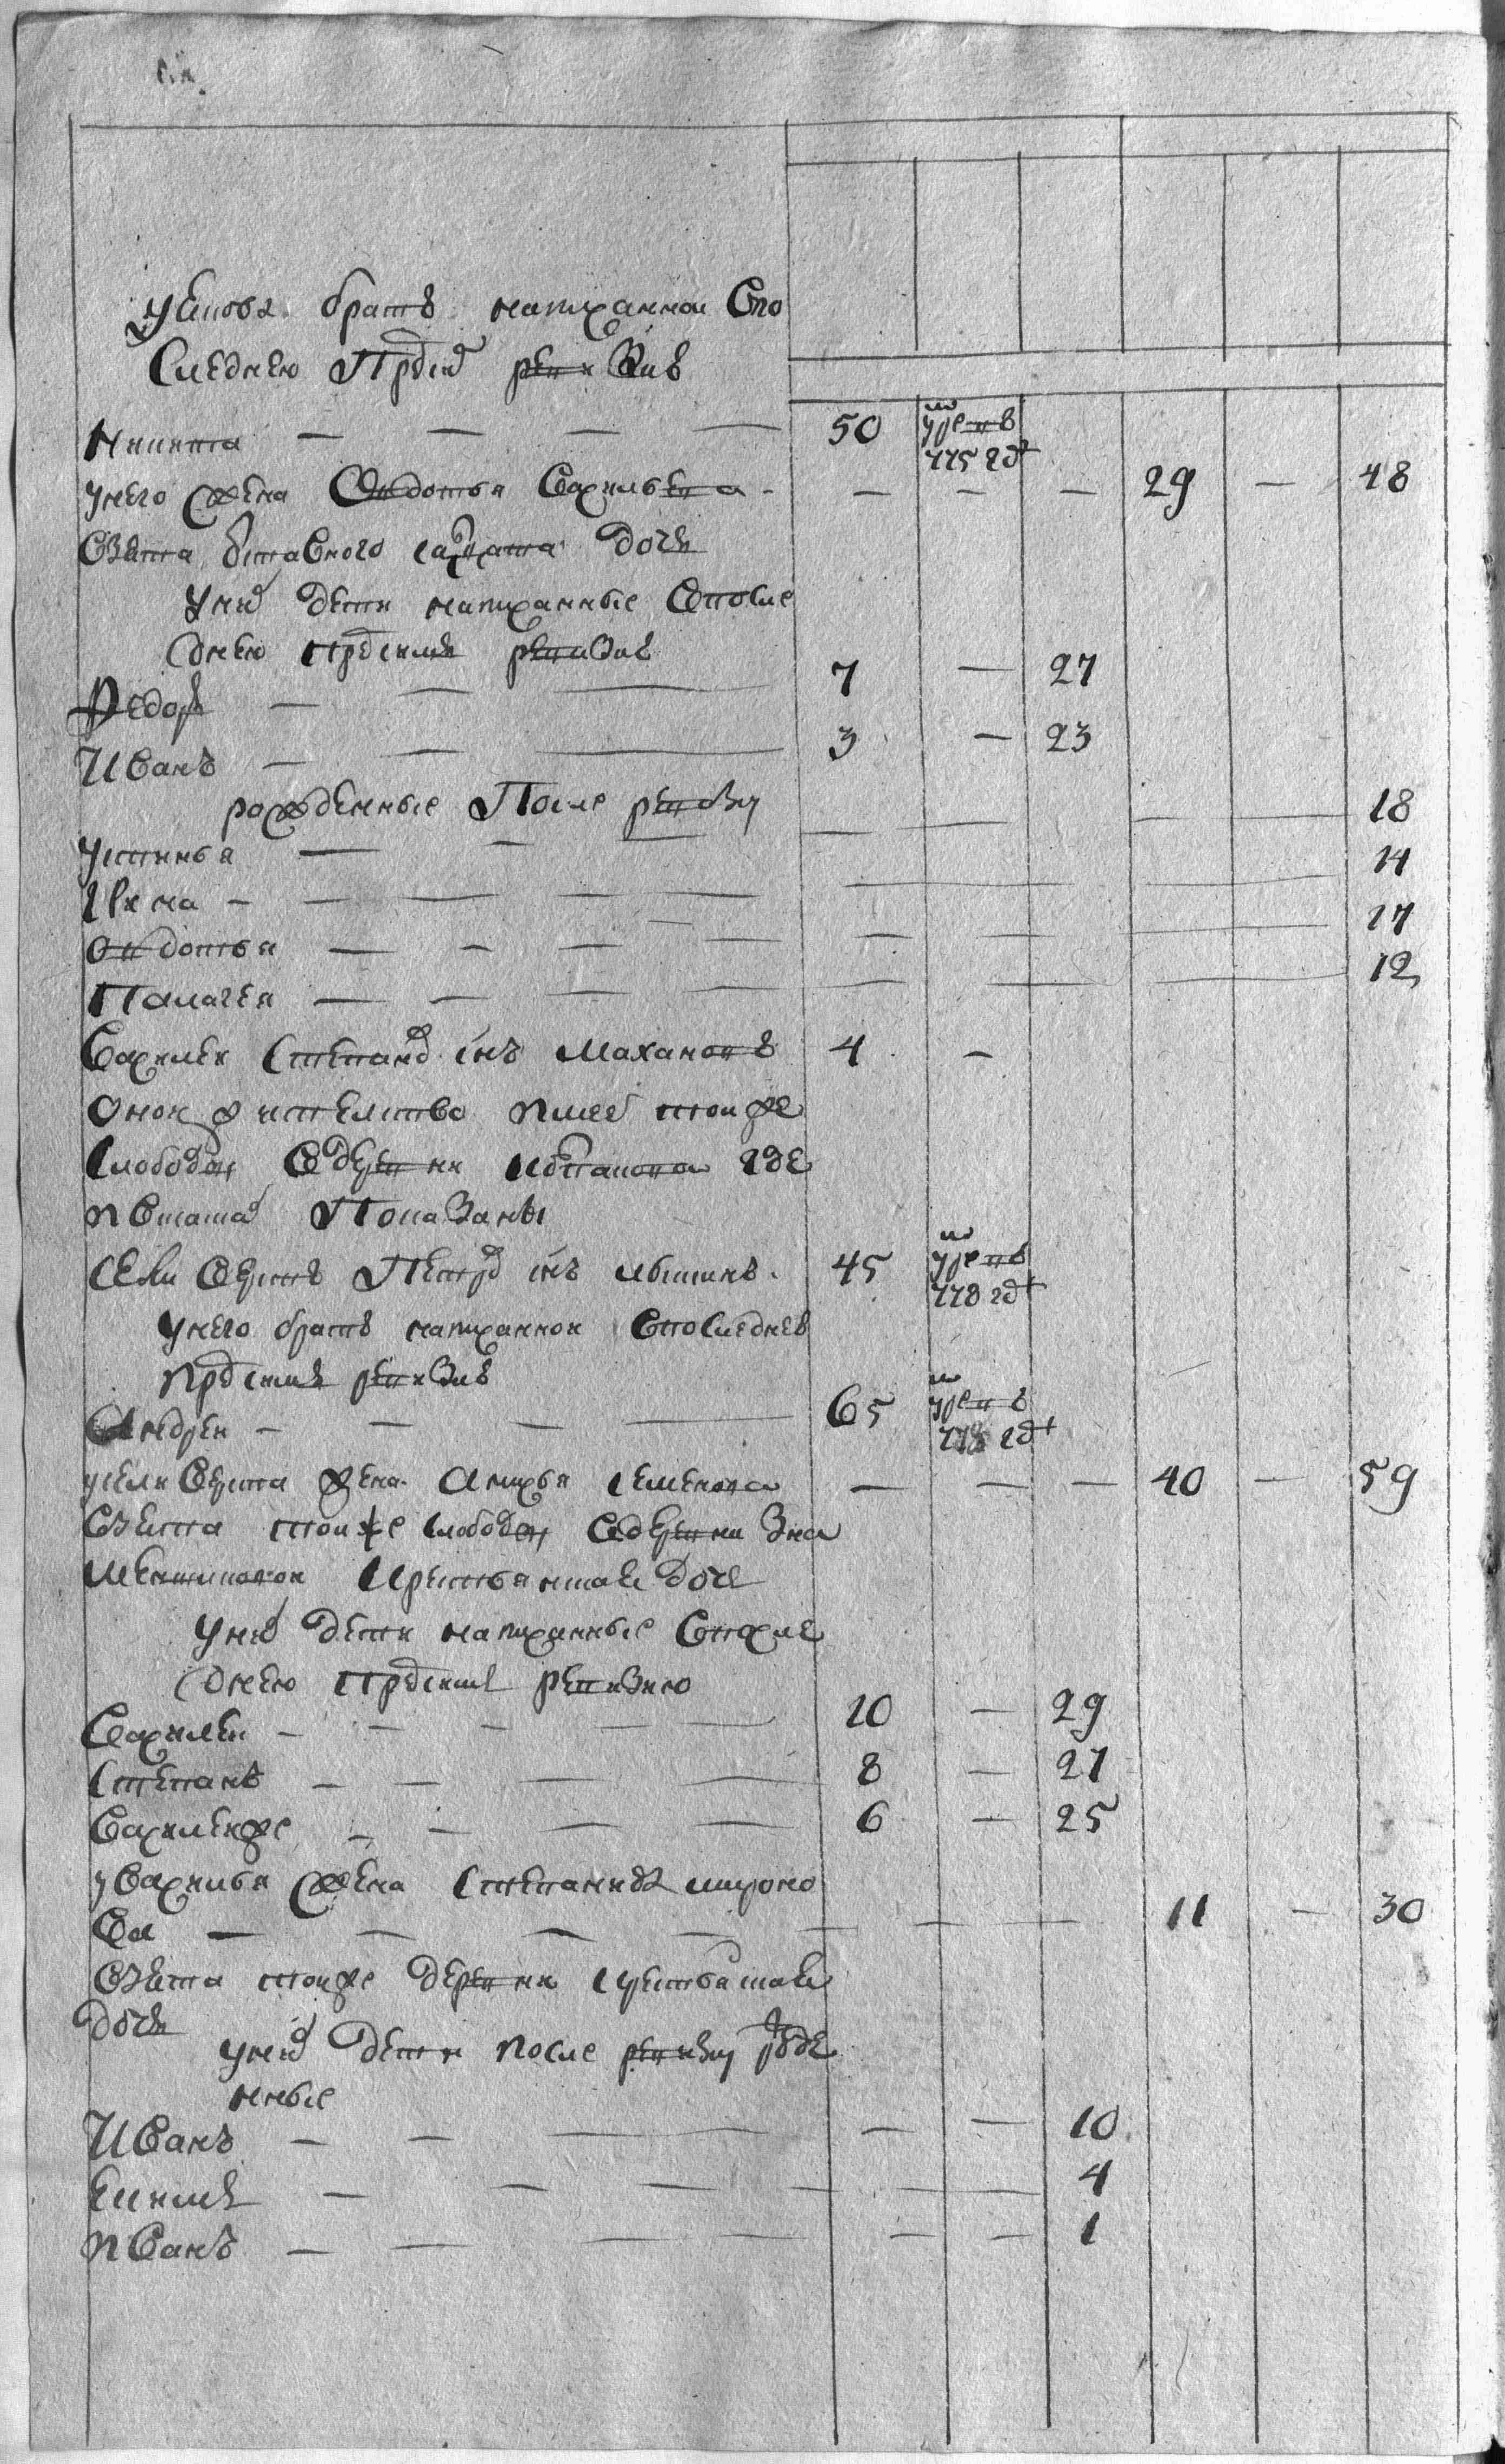 братъ написанной впо
следнею пред ревизию
Никита — — — — 50 умре в 775 год
у него жена Овдотья Васильева — — — 29 — 48
взята отставного салдата дочь
у них дети написанные в после
днею пред сим ревизию
Федоръ — — — 7 — 27
Иванъ — — — 3 — 23
рожденные после ревизи
Устинья — — — — — — — 18
Ирина — — — — — — — 14
Овдотья — — — — — — — 17
Палагея — — — — — — — 12
Василей Степановъ снъ Махановъ 4 —
оной жительство имеет тоя же
слободы в деревни где
и в штате показаны
Селиверстъ Петровъ снъ 45 умре в 778 год
у него братъ написанной в последнею
пред сим ревизию
Андрей — — — — 65 умре в 778 год
у Селиверста жена Анисья Семенова — — — 40 — 59
взята тоя же слободы в деревни Зна
менщиковой крестьянская дочь
у них дети написанные в после
днею пред сим ревизию
Василей — — — — — 10 — 29
Степанъ — — — — 8 — 27
Василей же — — — — 6 — 25
у Василья жена Степанида Мироно
ва — — — — — — — 11 — 30
взята тоя же деревни крестьянская
дочь
у них дети после ревизи рожде
нные
Иванъ — — — — — — 10
Екимъ — — — — — — 4
Иванъ — — — — — — 1